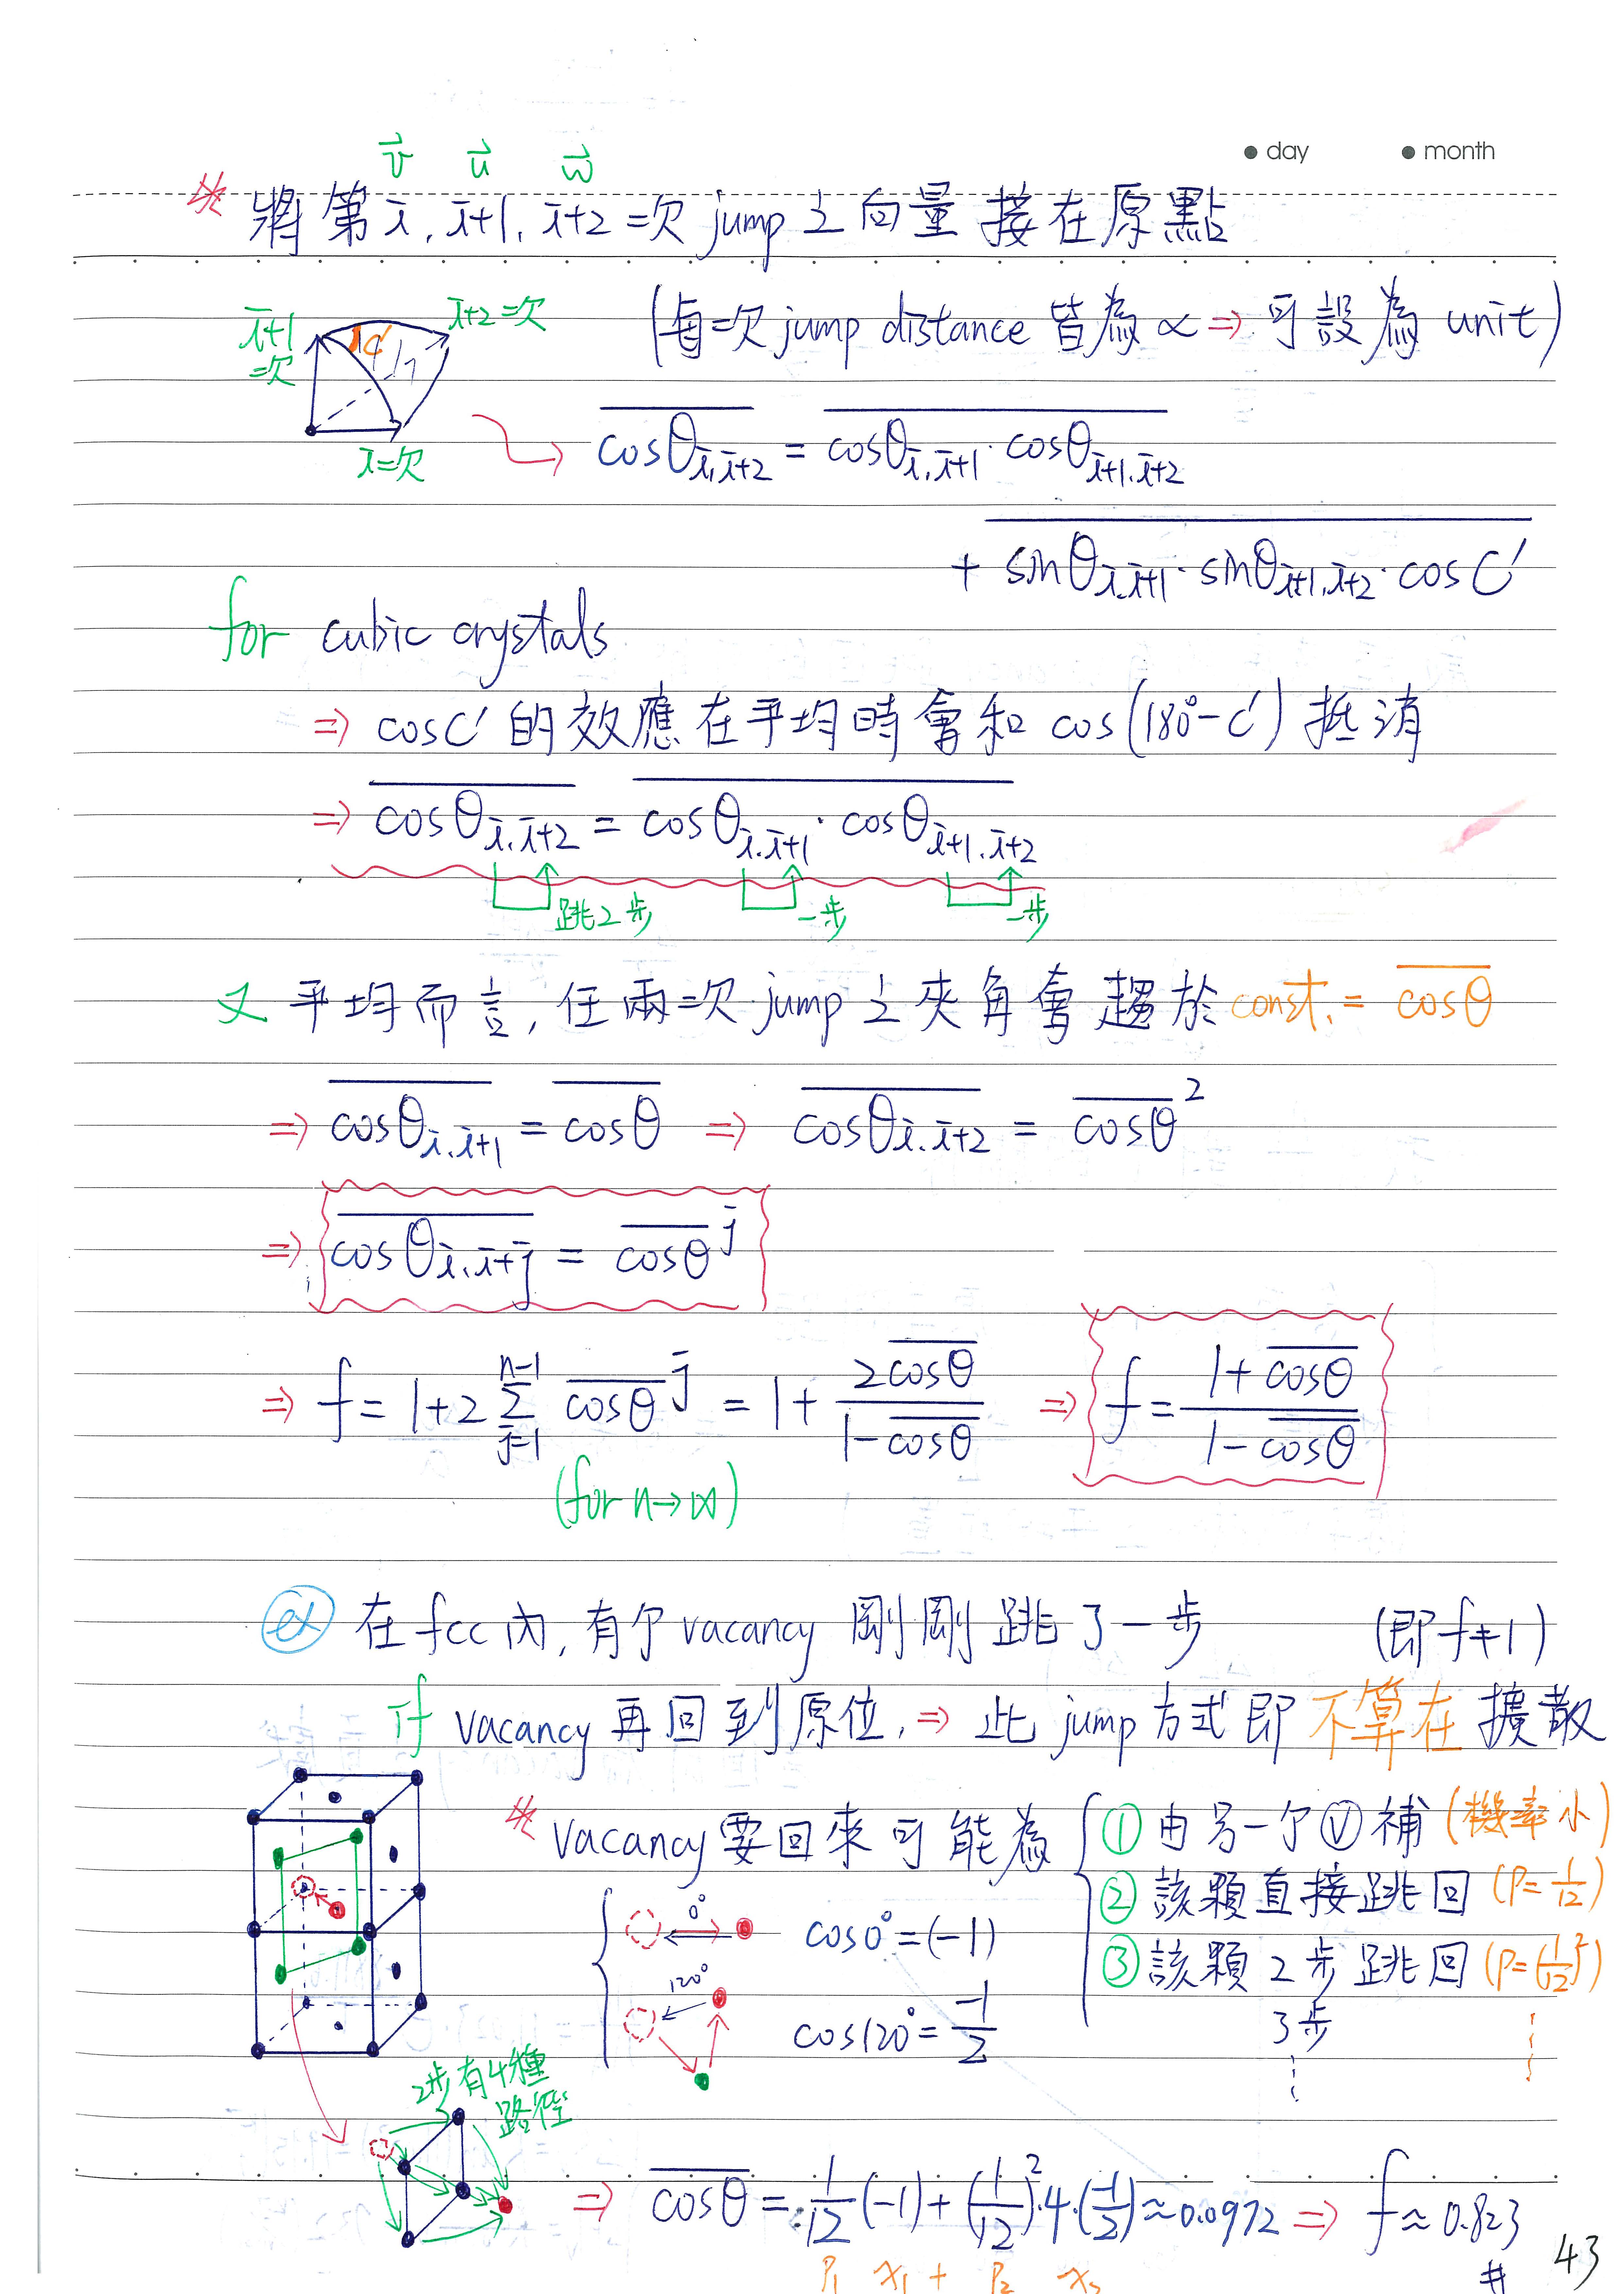 ● day ● month
v⃗ u⃗ w⃗
※ 將第 i, i+1, i+2 =次 jump 之向量 接在原點
i+1 =次
i+2 =次
(每=次 jump distance 皆為 α ⇒ 可設為 unit)
C'
i=次
cosθ̅ᵢ,ᵢ₊₂ = cosθᵢ,ᵢ₊₁ · cosθᵢ₊₁,ᵢ₊₂
+ sinθᵢ,ᵢ₊₁ · sinθᵢ₊₁,ᵢ₊₂ · cos C'
for cubic crystals
⇒ cosC' 的效應在平均時會和 cos(180°-C') 抵消
⇒ cosθᵢ,ᵢ₊₂ = cosθᵢ,ᵢ₊₁ · cosθᵢ₊₁,ᵢ₊₂
跳2步 一步 一步
又 平均而言, 任兩=次 jump 之夾角會 趨於 const. = cosθ
⇒ cosθᵢ,ᵢ₊₁ = cosθ ⇒ cosθᵢ,ᵢ₊₂ = cosθ²
⇒ cosθᵢ,ᵢ₊ⱼ = cosθ^j
⇒ f = 1+2 Σ_{j=1}^{n-1} cosθ^j = 1 + 2cosθ/(1-cosθ) ⇒ f = (1+cosθ)/(1-cosθ)
(for n→∞)
ex 在 fcc 內, 有个 vacancy 剛剛跳了一步 (即 f≠1)
if vacancy 再回到原位, ⇒ 此 jump 方式即 不算在 擴散
※ Vacancy 要回來可能為
① 由另一个 Ⓥ 補 (機率小)
② 該顆直接跳回 (P=1/12)
③ 該顆 2 步跳回 (P=(1/12)²)
3 步
0°
cos0° = (-1)
120°
cos120° = -1/2
2步有4種
路徑
⇒ cosθ = 1/12(-1) + (1/12)²·4·(-1/2) ≈ 0.0972 ⇒ f ≈ 0.823
P₁ x₁ + P₂ x₂
#
43